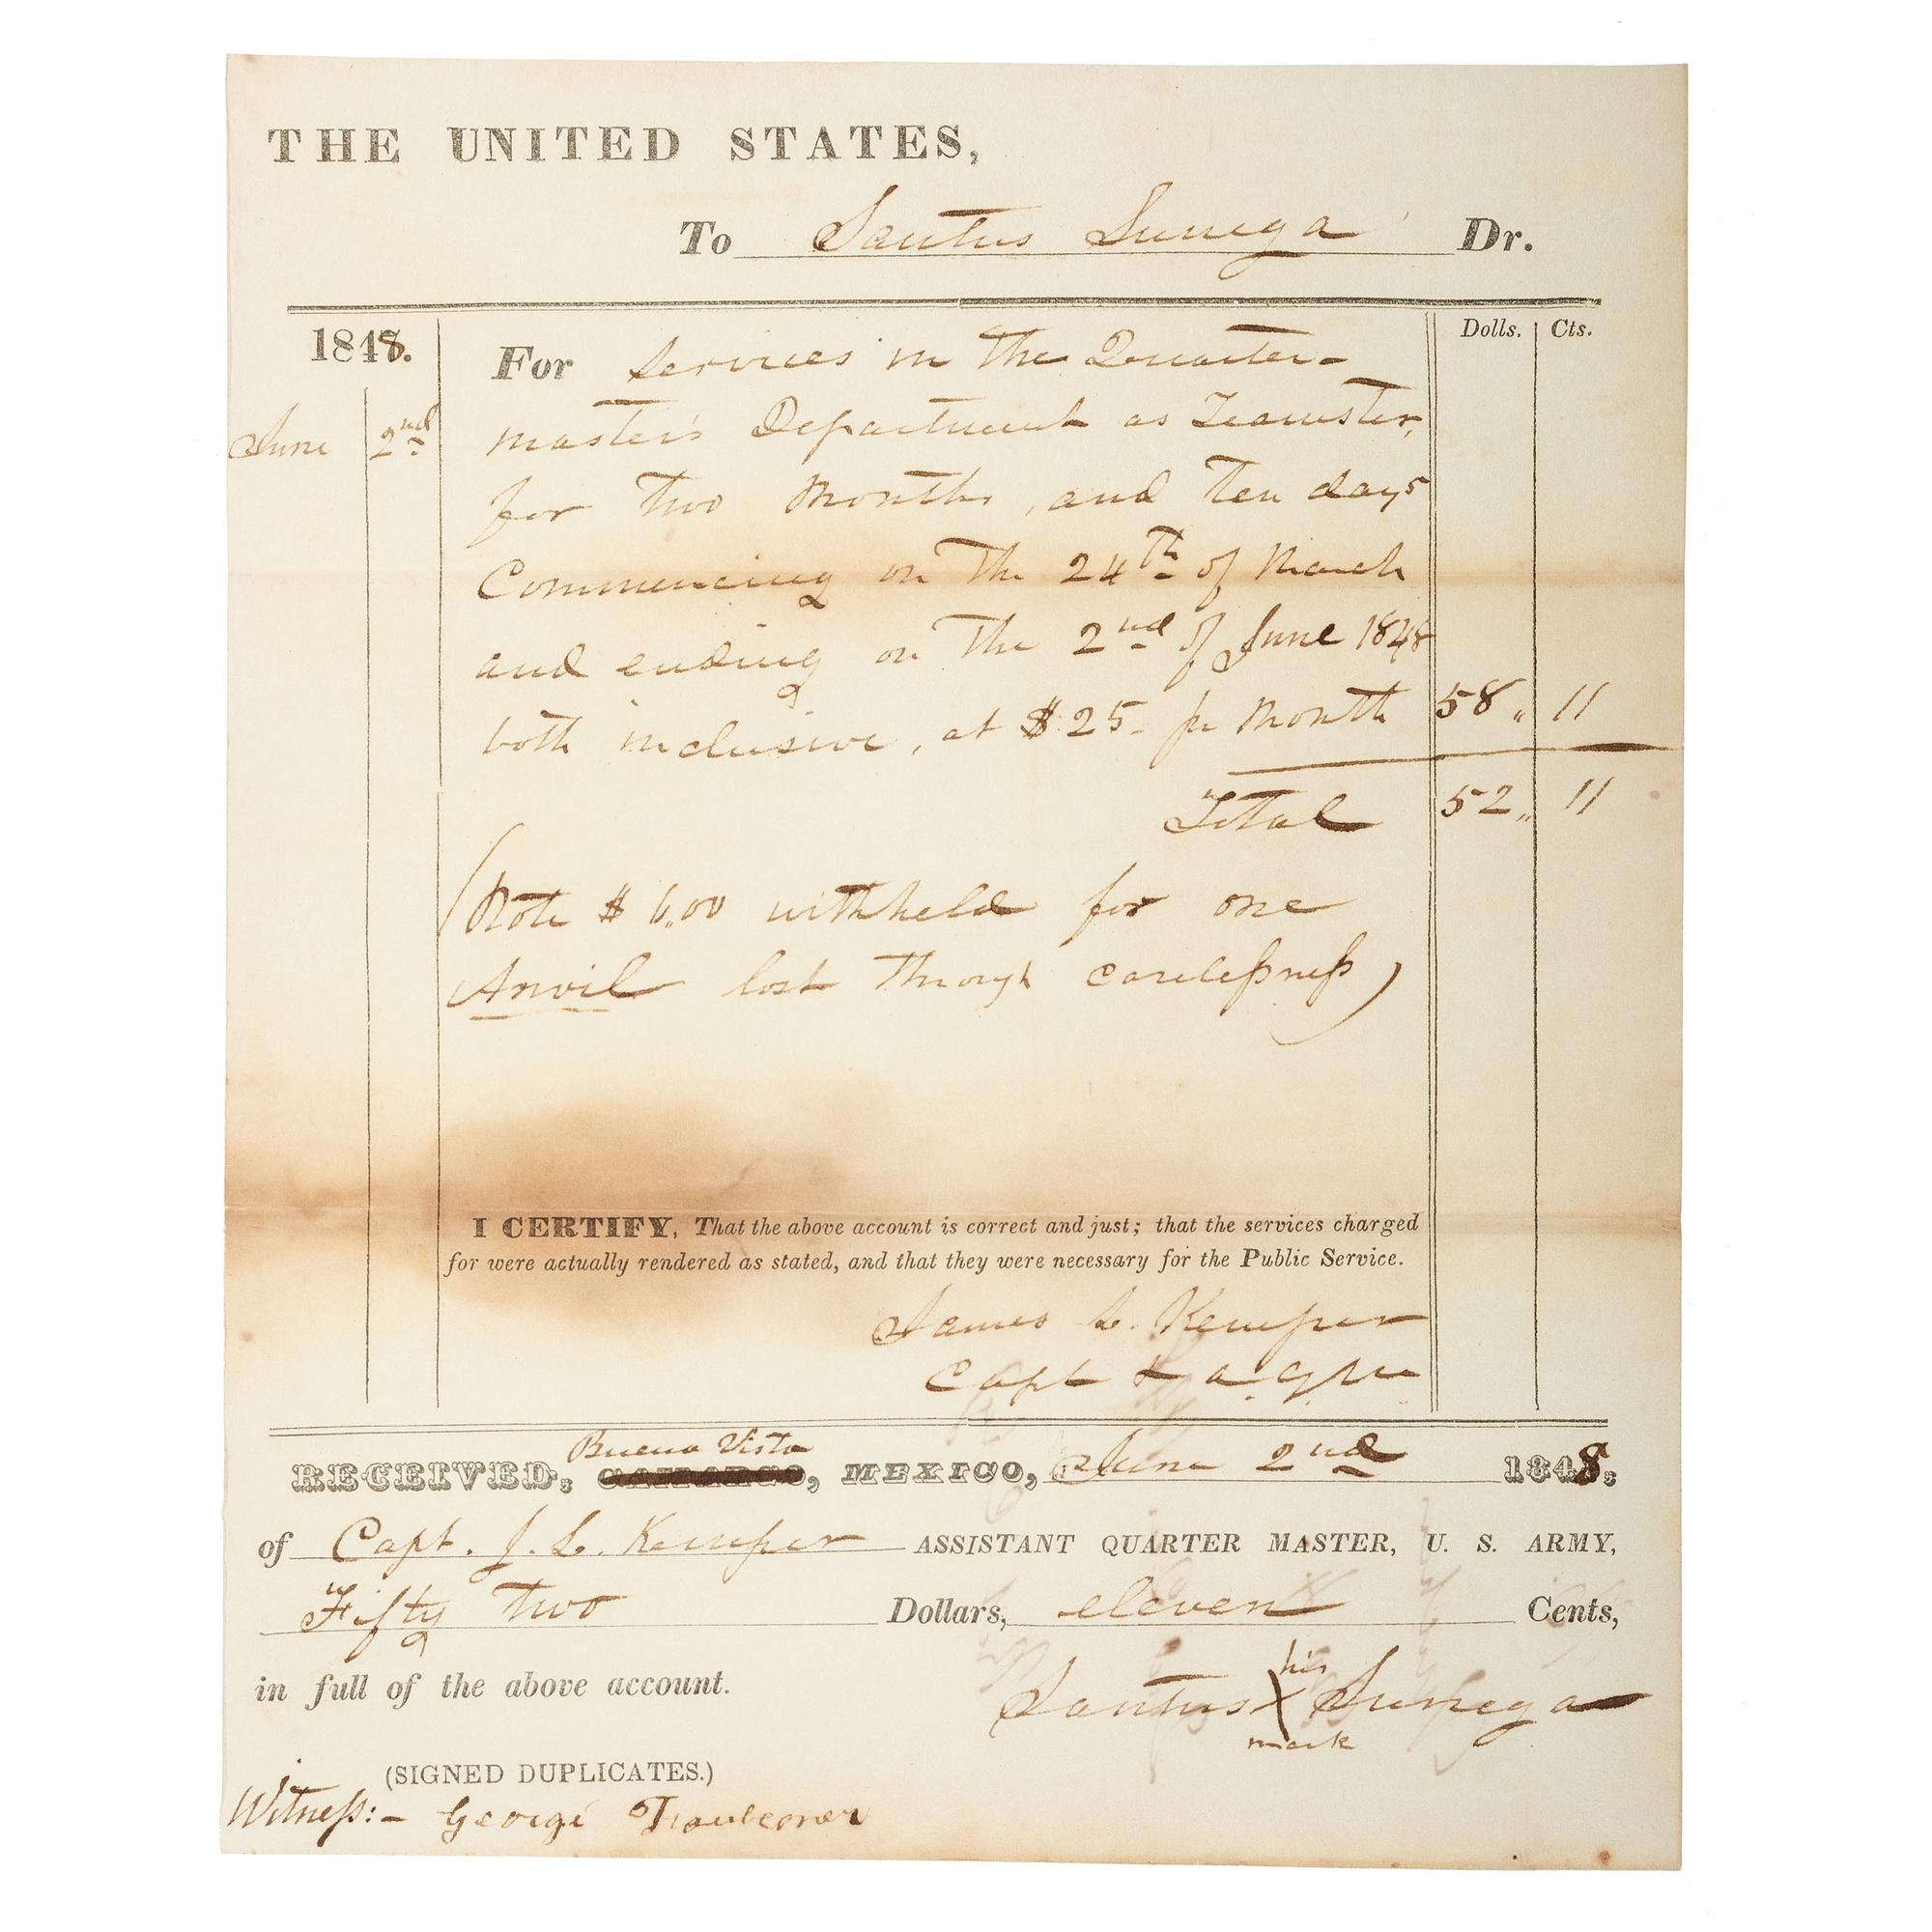 THE UNITED STATES,
To Santus Sunega Dr.
1848. Dolls. Cts.
For Services in the Quarter-
June 2nd master's Department as Teamster,
for two months, and ten days
Commencing on the 24th of March
and ending on the 2nd of June 1848
both inclusive, at $25- pr month 58 „ 11
Total 52 „ 11
(Note $6„00 withheld for one
Anvil lost through carelessness)
I CERTIFY, That the above account is correct and just; that the services charged
for were actually rendered as stated, and that they were necessary for the Public Service.
James L. Kemper
Capt & a.q.m
Buena Vista
RECEIVED, CAMARGO, MEXICO, June 2nd 1848,
of Capt. J. L. Kemper ASSISTANT QUARTER MASTER, U. S. ARMY,
Fifty two Dollars, eleven Cents,
in full of the above account.
his
Santus X Sunega
mark
(SIGNED DUPLICATES.)
Witness:- George